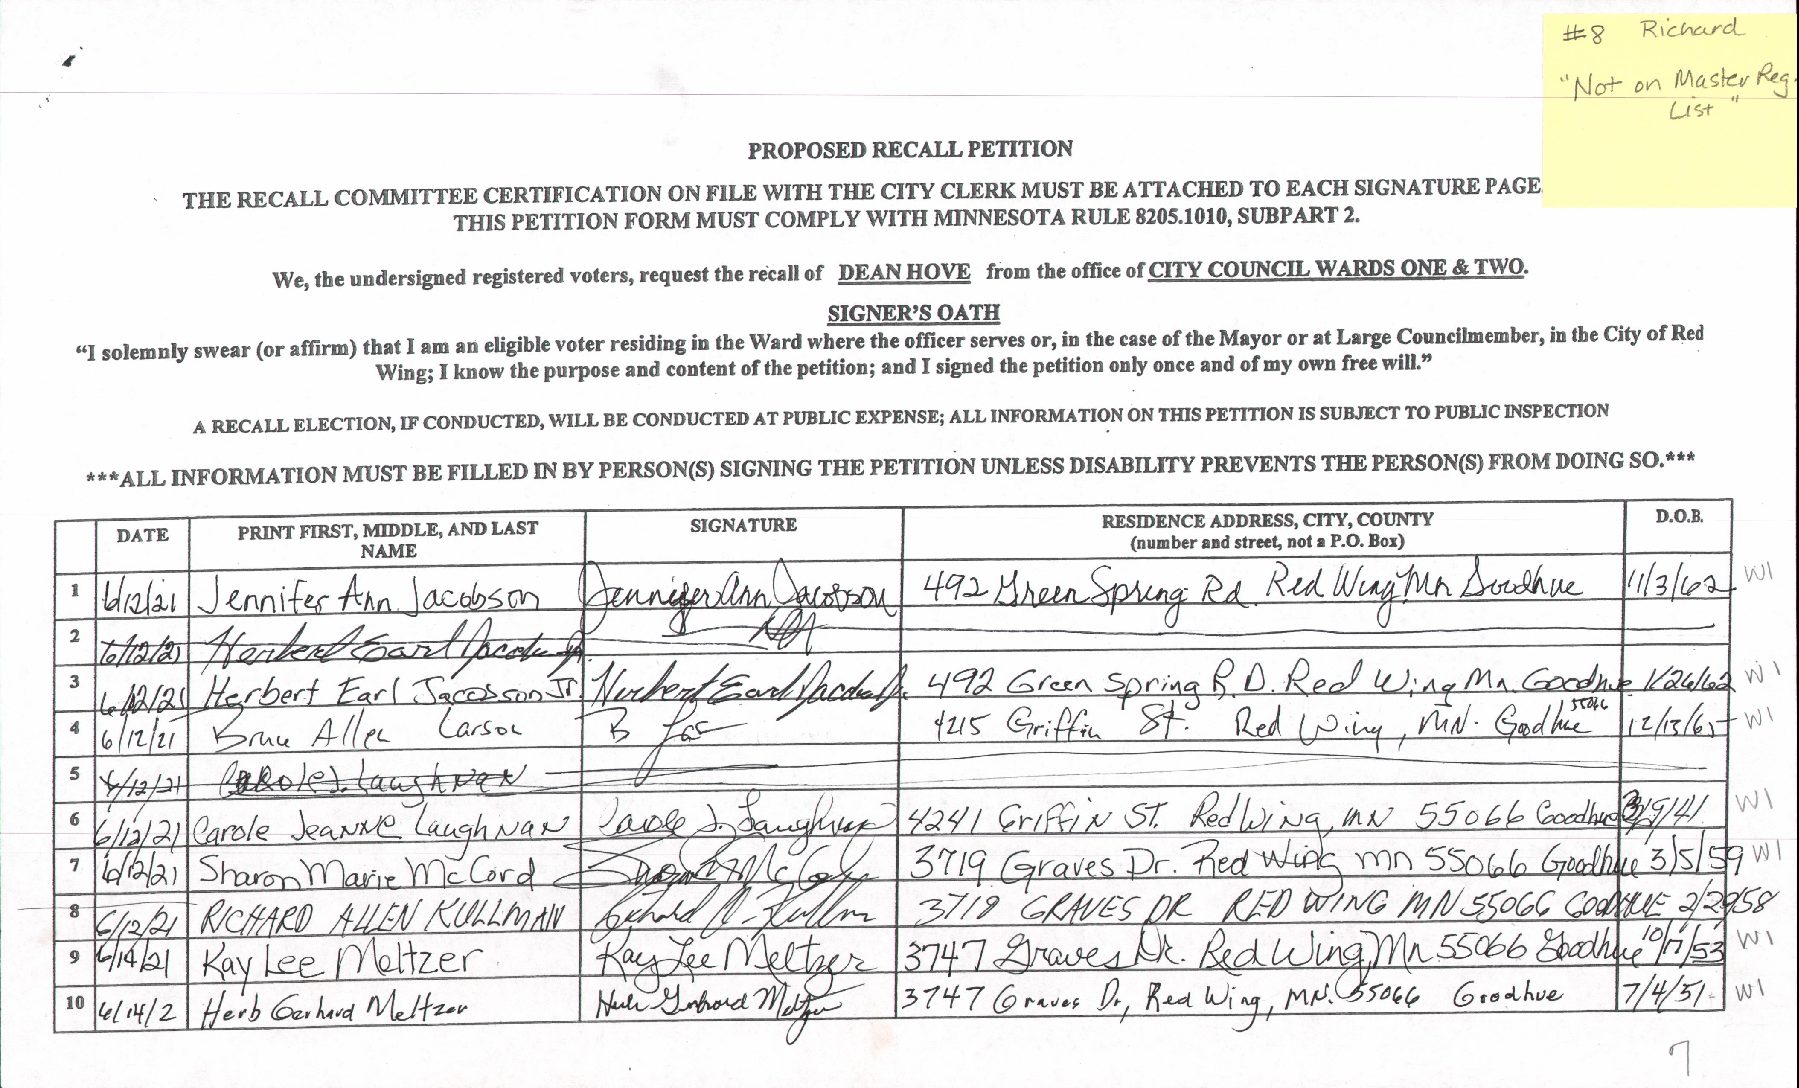 #8 Richard
"Not on Master Reg.
List"
PROPOSED RECALL PETITION
THE RECALL COMMITTEE CERTIFICATION ON FILE WITH THE CITY CLERK MUST BE ATTACHED TO EACH SIGNATURE PAGE
THIS PETITION FORM MUST COMPLY WITH MINNESOTA RULE 8205.1010, SUBPART 2.
We, the undersigned registered voters, request the recall of DEAN HOVE from the office of CITY COUNCIL WARDS ONE & TWO.
SIGNER'S OATH
"I solemnly swear (or affirm) that I am an eligible voter residing in the Ward where the officer serves or, in the case of the Mayor or at Large Councilmember, in the City of Red
Wing; I know the purpose and content of the petition; and I signed the petition only once and of my own free will."
A RECALL ELECTION, IF CONDUCTED, WILL BE CONDUCTED AT PUBLIC EXPENSE; ALL INFORMATION ON THIS PETITION IS SUBJECT TO PUBLIC INSPECTION
***ALL INFORMATION MUST BE FILLED IN BY PERSON(S) SIGNING THE PETITION UNLESS DISABILITY PREVENTS THE PERSON(S) FROM DOING SO.***
DATE PRINT FIRST, MIDDLE, AND LAST NAME SIGNATURE RESIDENCE ADDRESS, CITY, COUNTY (number and street, not a P.O. Box) D.O.B.
1 6/12/21 Jennifer Ann Jacobson Jennifer Ann Jacobson 492 Green Spring Rd. Red Wing Mn Goodhue 11/3/62 W1
2 6/12/21 Herbert Earl Jacobson Jr.
3 6/12/21 Herbert Earl Jacobson Jr. Herbert Earl Jacobson Jr. 492 Green Spring R.D. Red Wing Mn. Goodhue 1/26/62 W1
4 6/12/21 Bruce Allen Larson B Lar 4215 Griffin St. Red Wing, MN. Goodhue 55066 12/13/65 W1
5 6/12/21 Carole J. Laughnan
6 6/12/21 Carole Jeanne Laughnan Carole J. Laughnan 4241 Griffin St. Red Wing, MN 55066 Goodhue 3/9/41 W1
7 6/12/21 Sharon Marie McCord Sharon M McCord 3719 Graves Dr. Red Wing mn 55066 Goodhue 3/5/59 W1
8 6/12/21 RICHARD ALLEN KULLMAN Richard A. Kullman 3719 GRAVES DR RED WING MN 55066 GOODHUE 2/2958
9 6/14/21 Kay Lee Meltzer Kay Lee Meltzer 3747 Graves Dr. Red Wing, Mn 55066 Goodhue 10/17/53 W1
10 6/14/2 Herb Gerhard Meltzer Herb Gerhard Meltzer 3747 Graves Dr, Red Wing, MN. 55066 Goodhue 7/4/51 W1
7